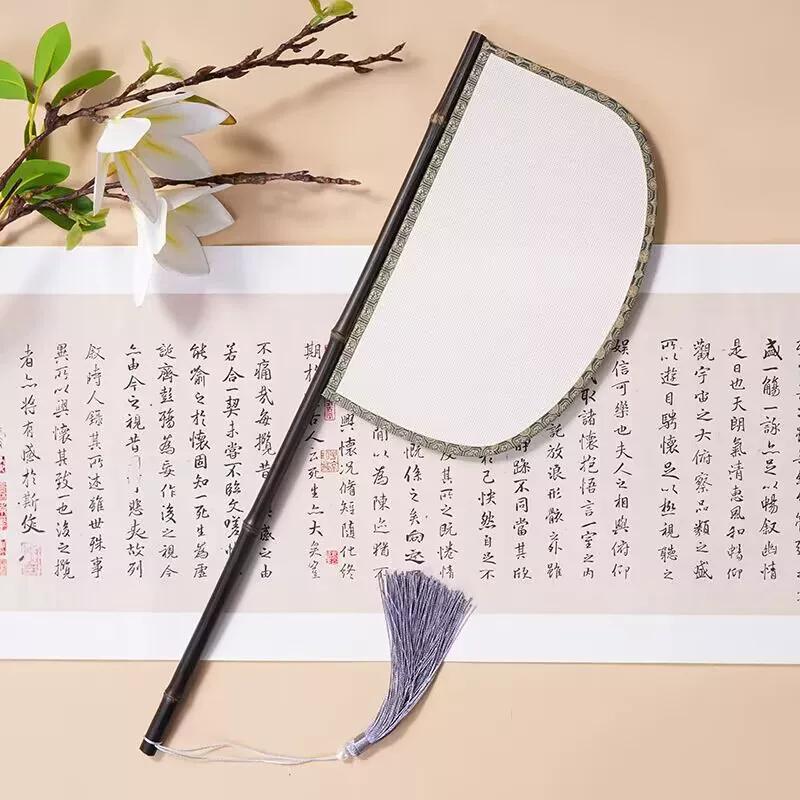 盛一觴一詠亦足以暢叙幽情
是日也天朗氣清惠風和暢仰
觀宇宙之大俯察品類之盛
所以遊目騁懷足以極視聽之
娛信可樂也夫人之相與俯仰
取諸懷抱悟言一室之內
託放浪形骸之外雖
躁不同當其欣
於己快然自足不
其所之既惓情
慨係之矣向之
間以為陳迹猶不
興懷況脩短隨化終
期於 古人云死生亦大矣豈
不痛哉每攬昔 感之由
若合一契未嘗不臨文嗟悼
能喻之於懷固知一死生為虛
誕齊彭殤為妄作後之視今
亦由今之視昔 悲夫故列
叙時人錄其所述雖世殊事
異所以興懷其致一也後之攬
者亦將有感於斯文